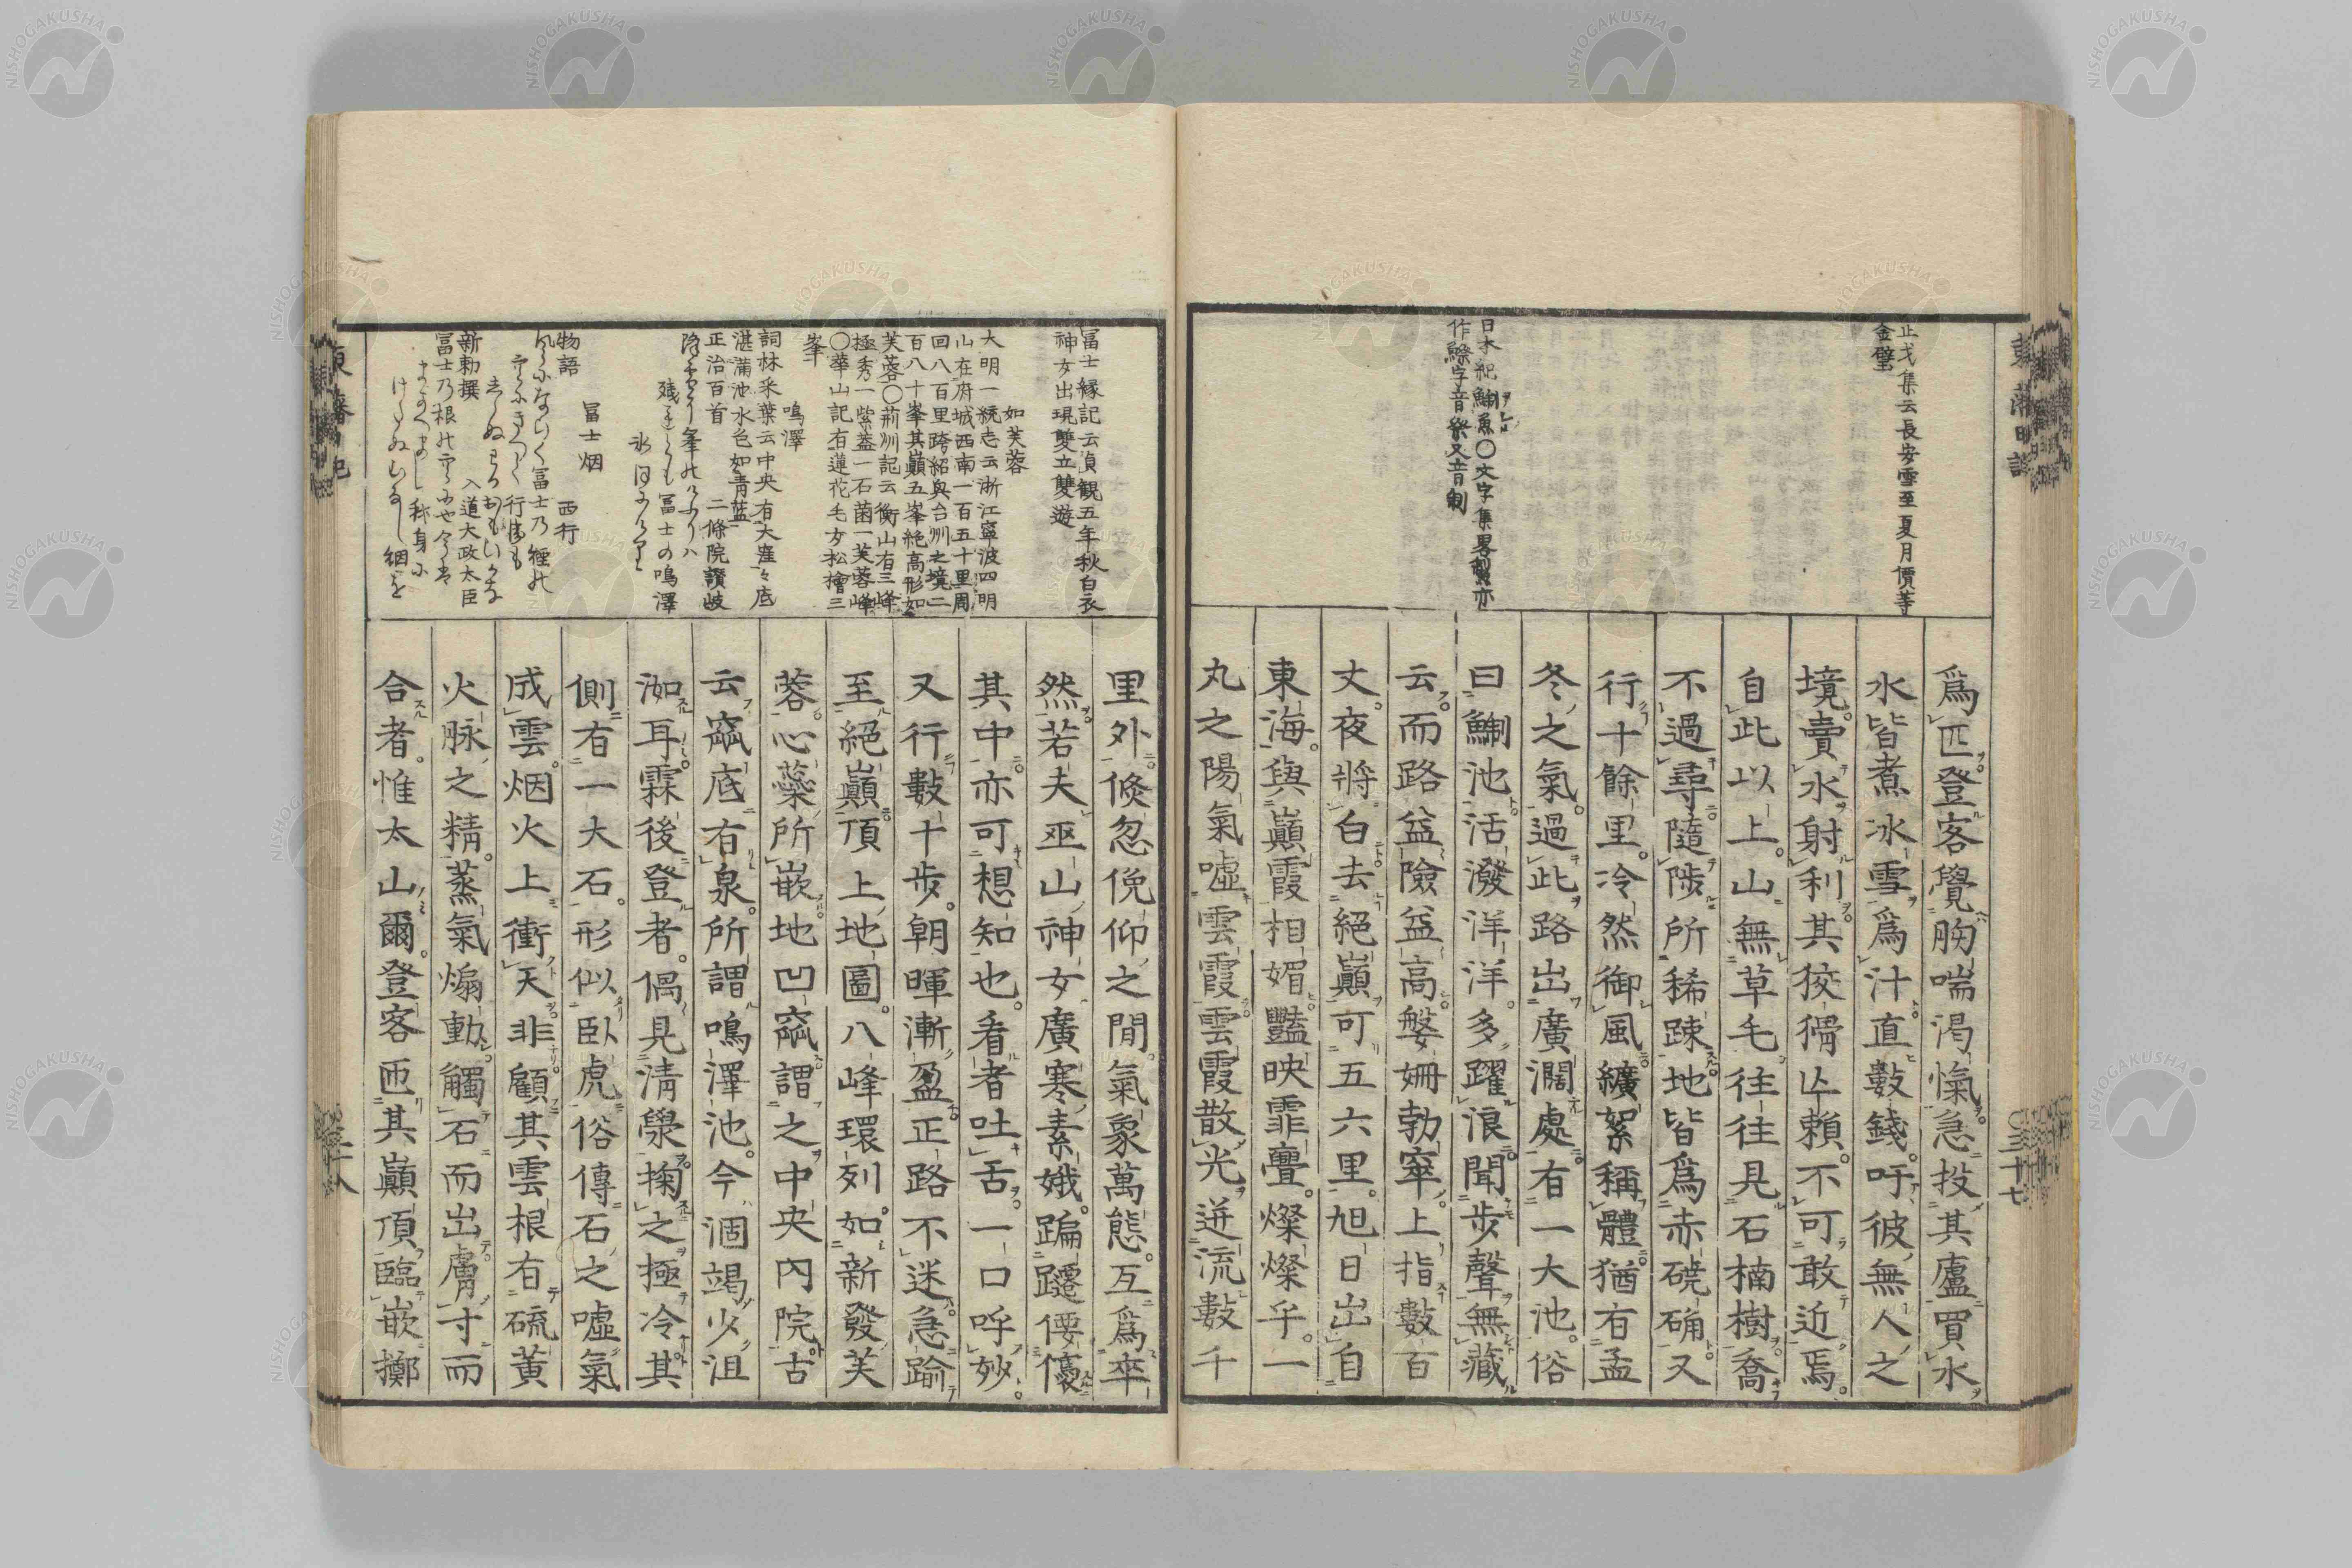 止戈集云長安雪至夏月價等
金璧
日本紀鯯魚〇文字集畧鰶亦
作鰶字音祭又音制
爲匹登客覺胸喘渇愾急投其廬買水
水皆煮冰雪爲汁直數錢吁彼無人之
境賣水射利其狡猾亾賴不可敢近焉
自此以上山無草毛往往見石楠樹喬
不過尋隨陟所稀踈地皆爲赤磽确又
行十餘里冷然御風纊絮稱體猶有孟
冬之氣過此路出廣濶處有一大池俗
曰鯯池活潑洋洋多躍浪聞步聲無藏
云而路益險益高媻姍勃窣上指數百
丈夜將白去絕巓可五六里旭日出自
東海與巓霞相媚豔映霏亹燦燦乎一
丸之陽氣嘘雲霞雲霞散光迸流數千
三十七
冨士縁記云貞観五年秋白衣
神女出現雙立雙遊
如芙蓉
大明一統志云浙江寧波四明
山在府城西南一百五十里周
回八百里跨紹與台州之境二
百八十峯其巓五峯絶高形如
芙蓉〇荊州記云衡山有三峰
極秀一紫葢一石菌一芙蓉峰
〇華山記有蓮花毛女松檜三
峯
鳴澤
詞林采葉云中央有大窪々底
湛滿池水色如青藍
正治百首 二條院讃岐
冨士の鳴澤
冨士烟 西行
物語
新勅撰 入道大政太臣
里外倐忽俛仰之間氣象萬態互爲卒
然若夫巫山神女廣寒素娥蹁躚僾
其中亦可想知也看者吐舌一口呼妙
又行數十步朝暉漸盈正路不迷急踰
至絕巓頂上地圖八峰環列如新發芙
蓉心蘂所嵌地凹窊謂之中央內院古
云窊底有泉所謂鳴澤池今涸竭少沮
洳耳霖後登者偶見淸㶅掬之極冷其
側有一大石形似臥虎俗傳石之嘘氣
成雲烟火上衝天非顧其雲根有硫黃
火脉之精蒸氣煽動觸石而出膚寸而
合者惟太山爾登客匝其巓頂臨嵌擲